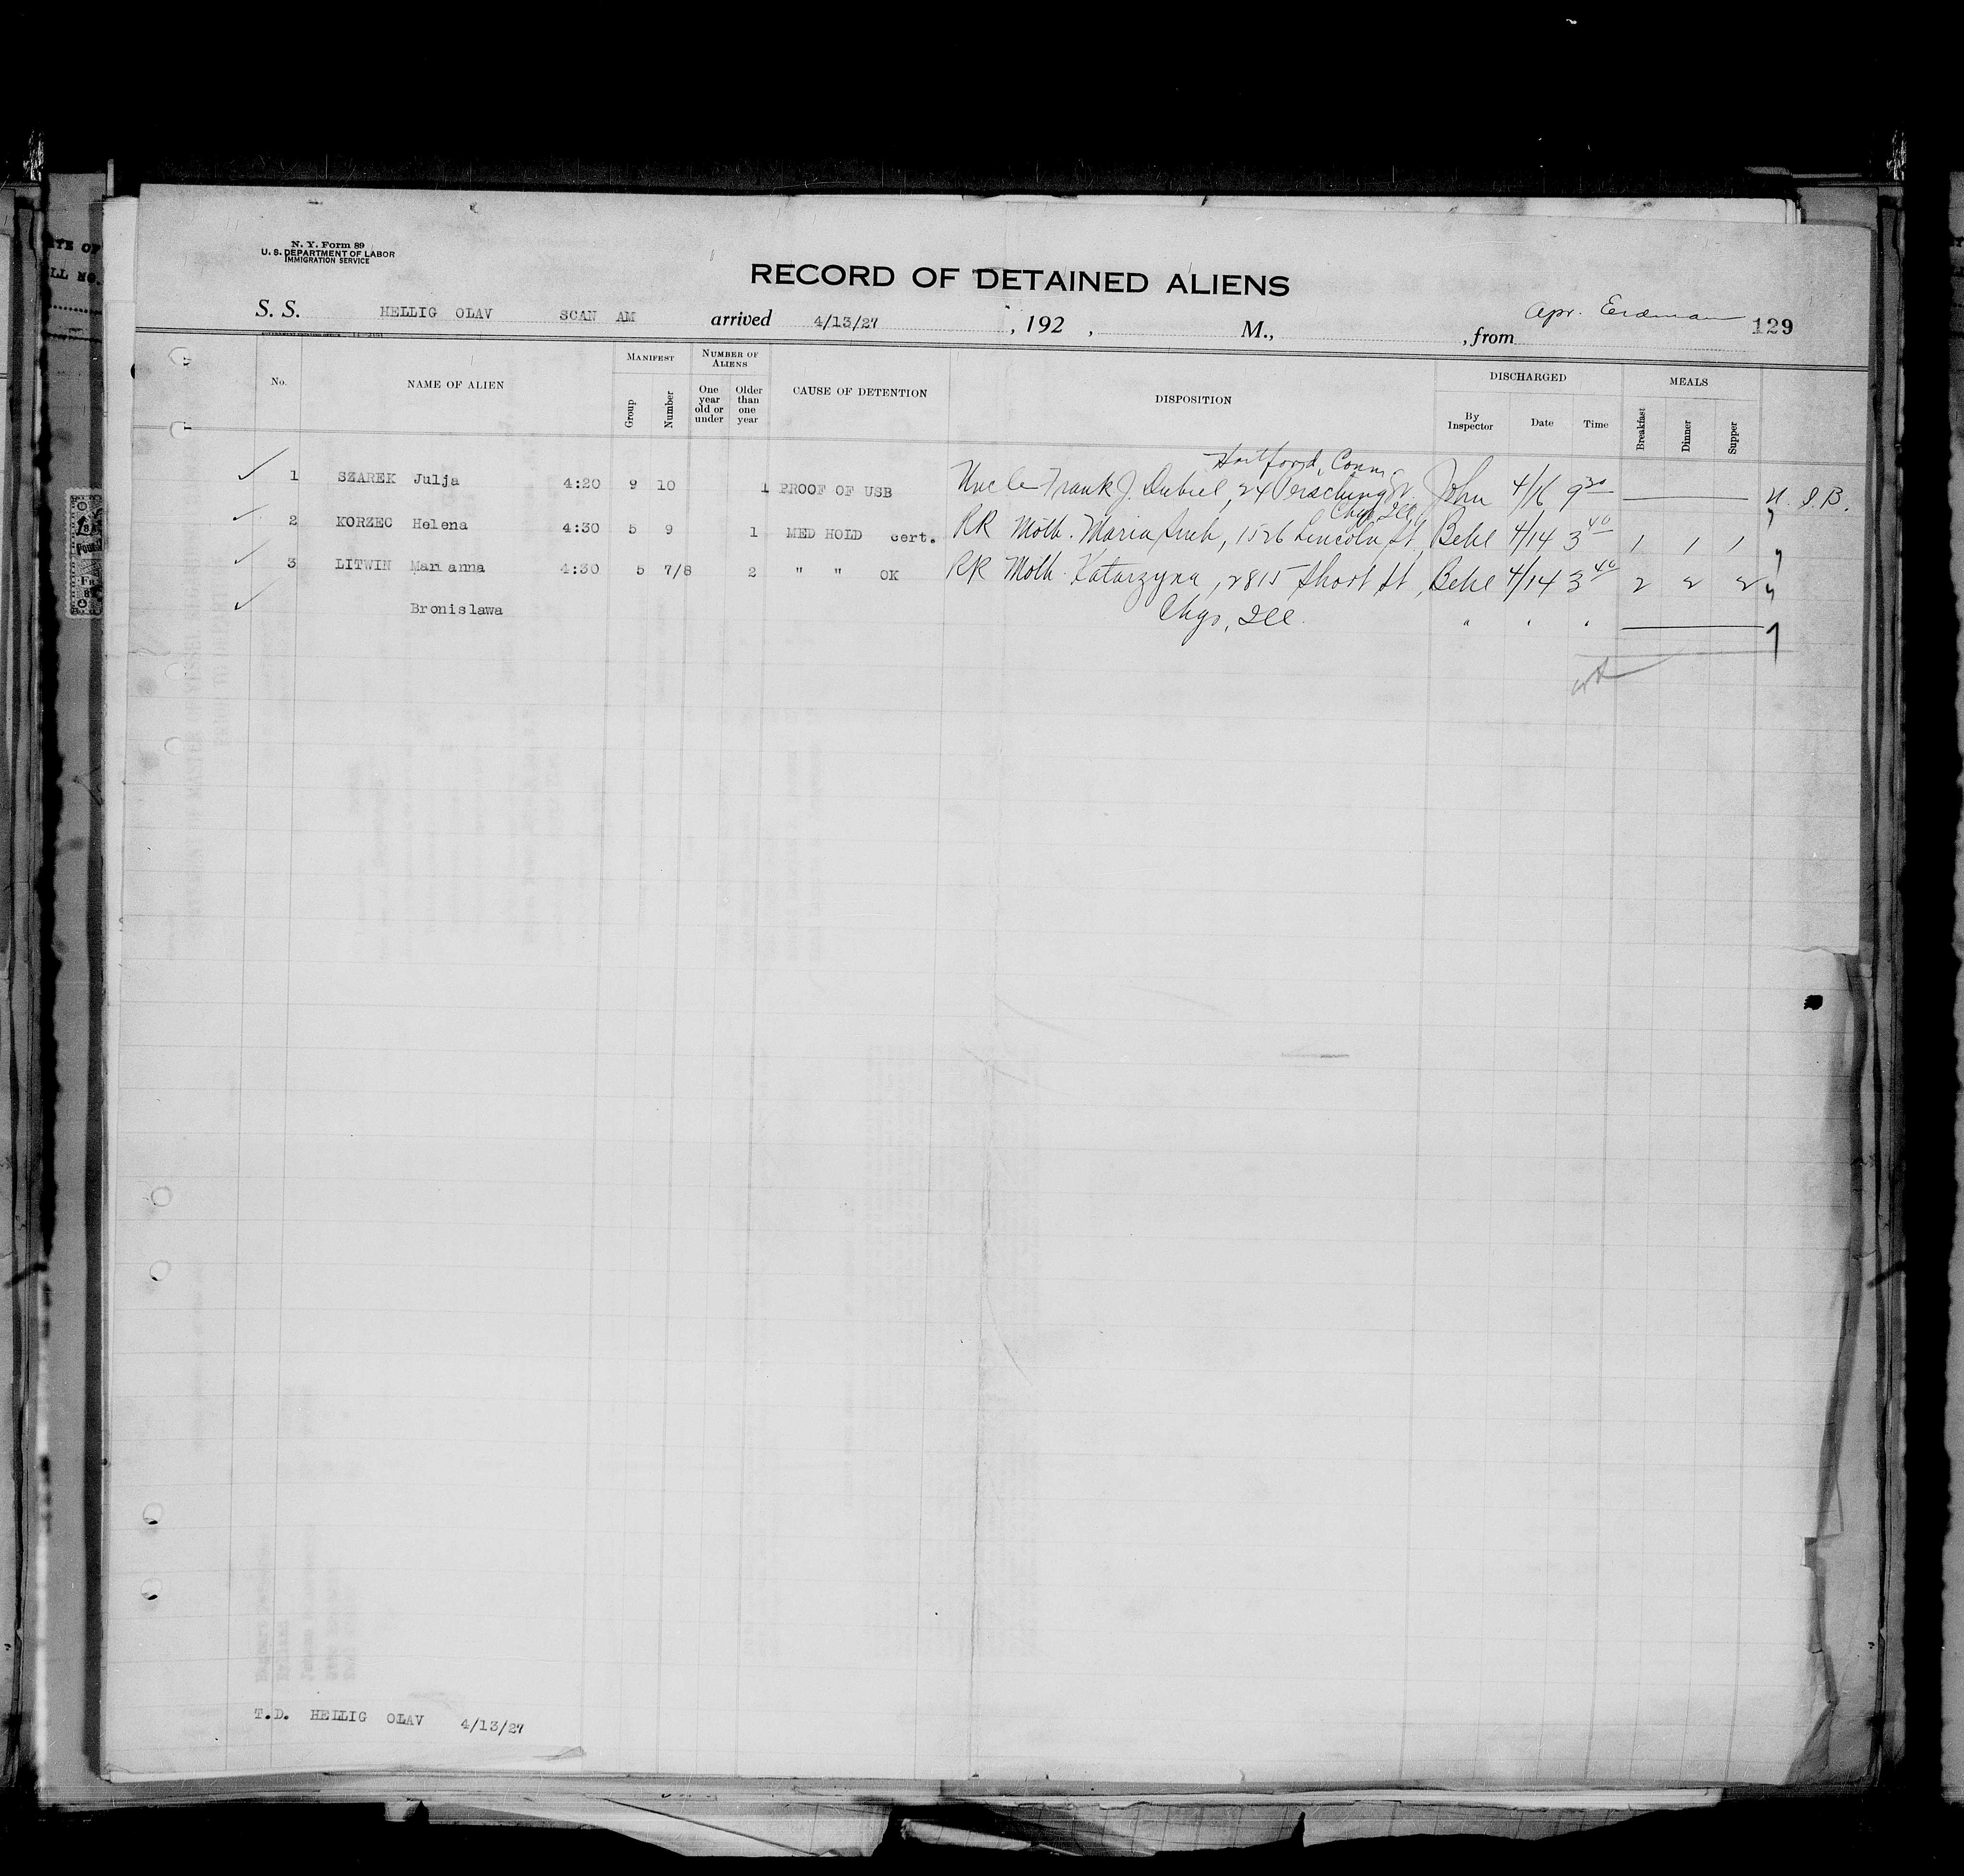 N. Y. Form 89
U. S. DEPARTMENT OF LABOR
IMMIGRATION SERVICE
RECORD OF DETAINED ALIENS
S. S. HELLIG OLAV SCAN AM arrived 4/13/27, 192 , M., , from Apr. Erdman 129
No. NAME OF ALIEN MANIFEST Group Number NUMBER OF ALIENS One year old or under Older than one year CAUSE OF DETENTION DISPOSITION DISCHARGED By Inspector Date Time MEALS Breakfast Dinner Supper
Hartford, Conn.
1 SZAREK Julja 4:20 9 10 1 PROOF OF USB Uncle Frank J. Dubiel, 24 Persching St. John 4/16 9 30 S.B.
Chgo, Ill
2 KORZEC Helena 4:30 5 9 1 MED HOLD cert. RR Moth. Maria, 1526 Lincoln St, Behl 4/14 3 40 1 1 1
3 LITWIN Marianna 4:30 5 7/8 2 " " OK RR Moth. Katarzyna, 2815 Short St, Behl 4/14 3 40 2 2 2
Bronislawa Chgo, Ill. " " "
T.D. HELLIG OLAV 4/13/27